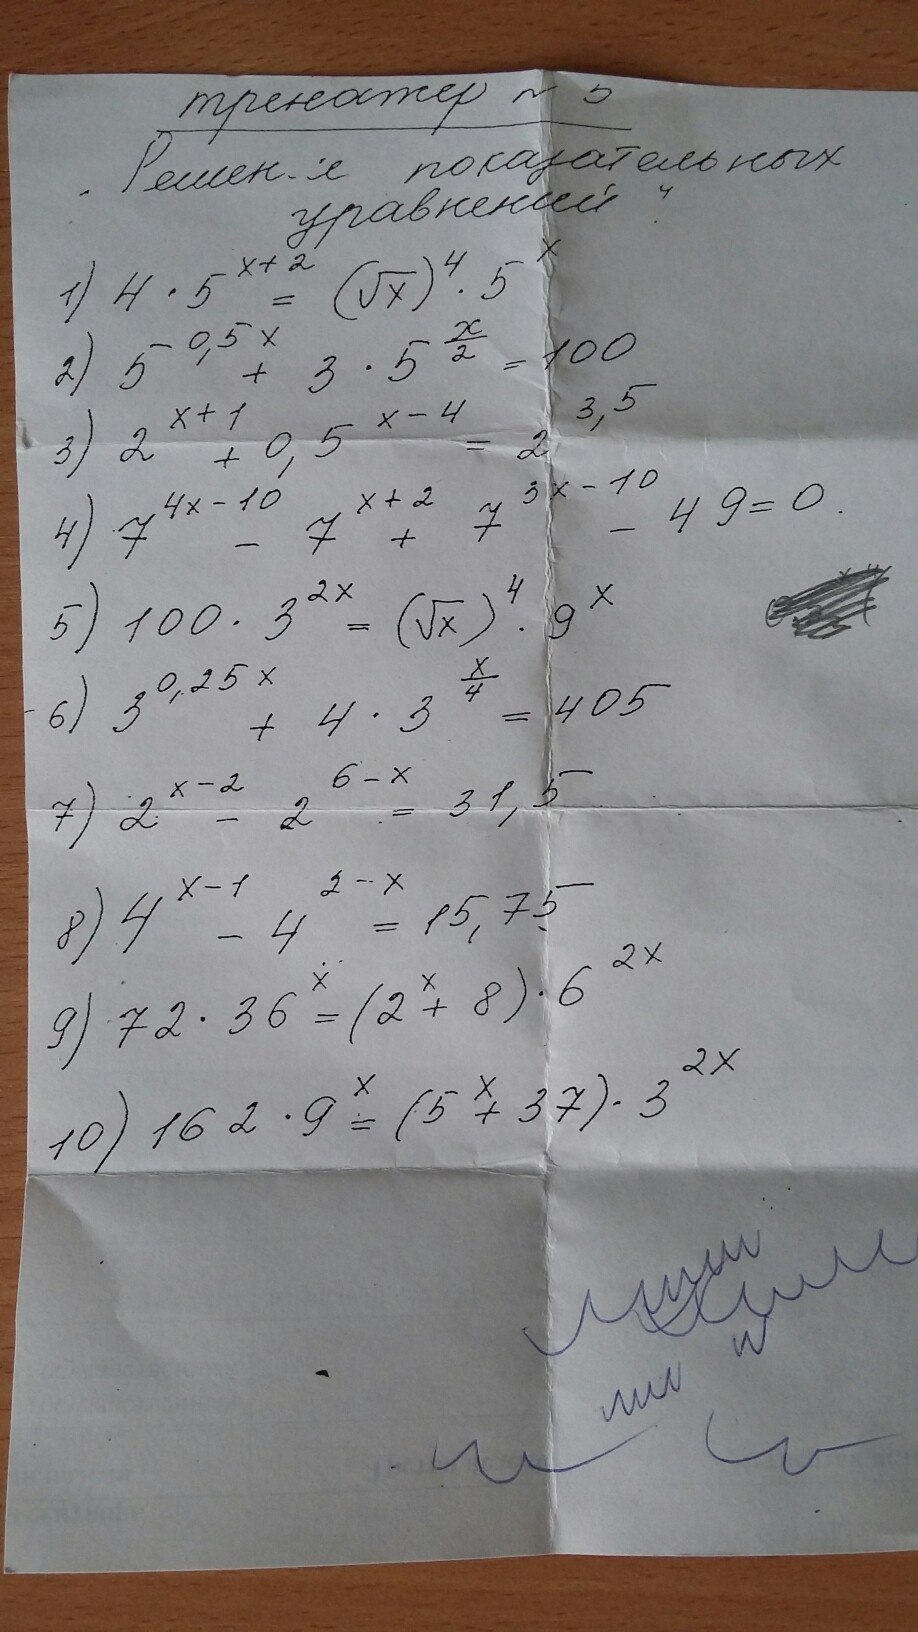 тренажер № 5
"Решение показательных
уравнений"
1) 4 · 5^(x+2) = (√x)^4 · 5^x
2) 5^(0,5x) + 3 · 5^(x/2) = 100
3) 2^(x+1) + 0,5^(x-4) = 2^(3,5)
4) 7^(4x-10) - 7^(x+2) + 7^(3x-10) - 49 = 0.
5) 100 · 3^(2x) = (√x)^4 · 9^x
6) 3^(0,25x) + 4 · 3^(x/4) = 405
7) 2^(x-2) - 2^(6-x) = 31,5
8) 4^(x-1) - 4^(2-x) = 15,75
9) 72 · 36^x = (2^x + 8) · 6^(2x)
10) 162 · 9^x = (5^x + 37) · 3^(2x)